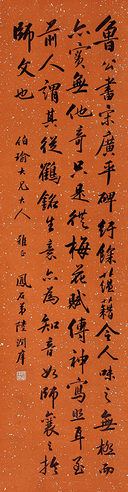 魯公書宋廣平碑紆餘蘊藉令人味之無極然
亦實無他奇只是從梅花賦傳神寫照耳至
前人謂其從鶴銘生意亦為知音如師襄之於
師文也
伯瑜大兄大人 雅正 鳳石弟陸潤庠